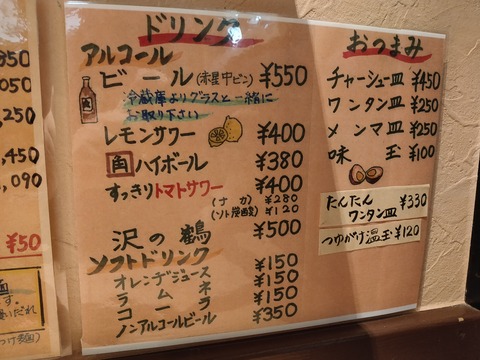 050
050
,250
,450
,090
¥50
ドリンク
アルコール
ビール(赤星中ビン) ¥550
冷蔵庫よりグラスと一緒に
お取り下さい
レモンサワー ¥400
角ハイボール ¥380
すっきりトマトサワー ¥400
(ナカ) ¥280
¥120
沢の鶴 ¥500
ソフトドリンク
オレンヂジュース ¥150
ラムネ ¥150
コーラ ¥150
ノンアルコールビール ¥350
おつまみ
チャーシュー皿 ¥450
ワンタン皿 ¥250
メンマ皿 ¥250
味玉 ¥100
たんたん
ワンタン皿 ¥330
つゆがけ温玉 ¥120